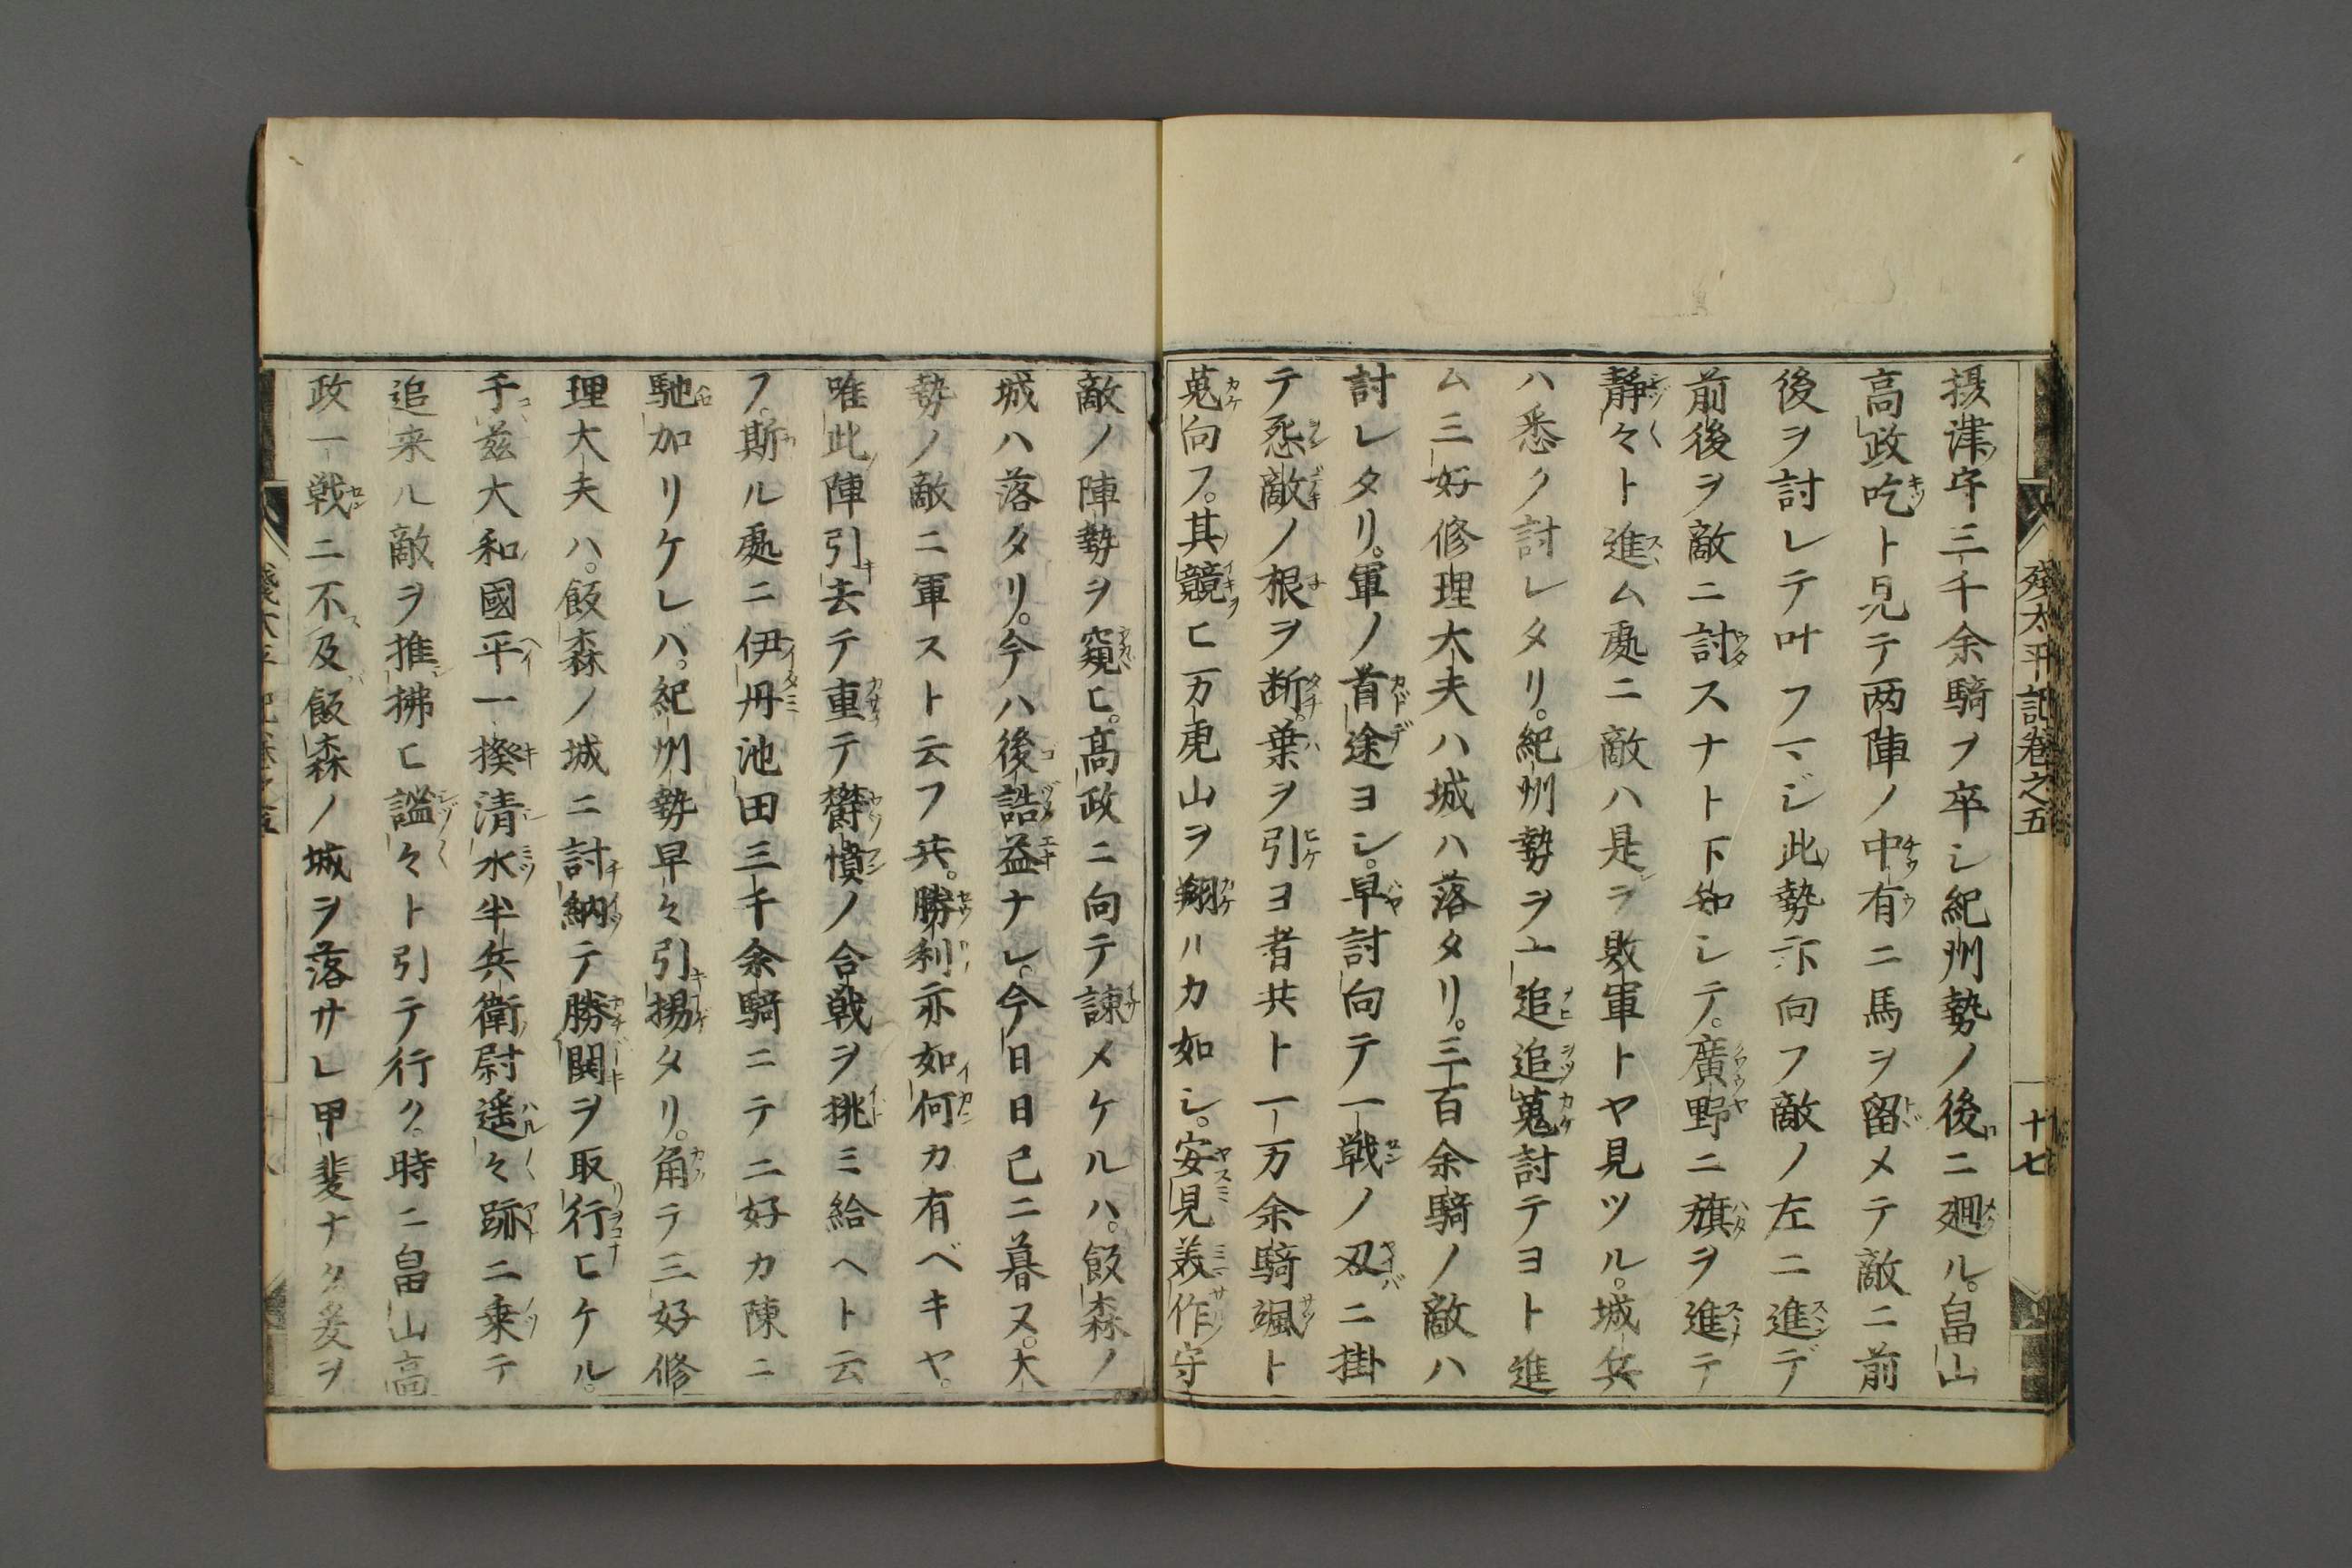 残太平記巻之五
十七
摂津守三千余騎ヲ卒シ紀州勢ノ後ニ廻ル。畠山
高政吃ト見テ両陣ノ中有ニ馬ヲ留メテ敵ニ前
後ヲ討レテ叶フマジ此勢示向フ敵ノ左ニ進デ
前後ヲ敵ニ討スナト下知シテ。廣野ニ旗ヲ進テ
静々ト進ム處ニ敵ハ是ヲ敗軍トヤ見ツル。城兵
ハ悉ク討レタリ。紀州勢ヲ追追蒐討テヨト進
ム三好修理大夫ハ城ハ落タリ。三百余騎ノ敵ハ
討レタリ。軍ノ首途ヨシ。早討向テ一戦ノ刃ニ掛
テ怨敵ノ根ヲ断。葉ヲ引ヨ者共ト一万余騎颯ト
蒐向フ。其競ヒ万虎山ヲ翔ルカ如シ。安見美作守
敵ノ陣勢ヲ窺ヒ。高政ニ向テ諌メケルハ。飯森ノ
城ハ落タリ。今ハ後詰益ナレ。今日日已ニ暮ヌ。大
勢ノ敵ニ軍スト云フ共。勝利亦如何カ有ベキヤ。
唯此陣引去テ重テ欝憤ノ合戦ヲ挑ミ給ヘト云
フ。斯ル處ニ伊丹池田三千余騎ニテ三好カ陳ニ
馳加リケレバ。紀州勢早々引揚タリ。角テ三好修
理大夫ハ。飯森ノ城ニ討納テ勝閧ヲ取行ヒケル。
于茲大和國平一揆清水半兵衛尉遥々跡ニ乗テ
追来ル敵ヲ推拂ヒ謐々ト引テ行ク。時ニ畠山高
政一戦ニ不及飯森ノ城ヲ落サレ甲斐ナク爰ヲ